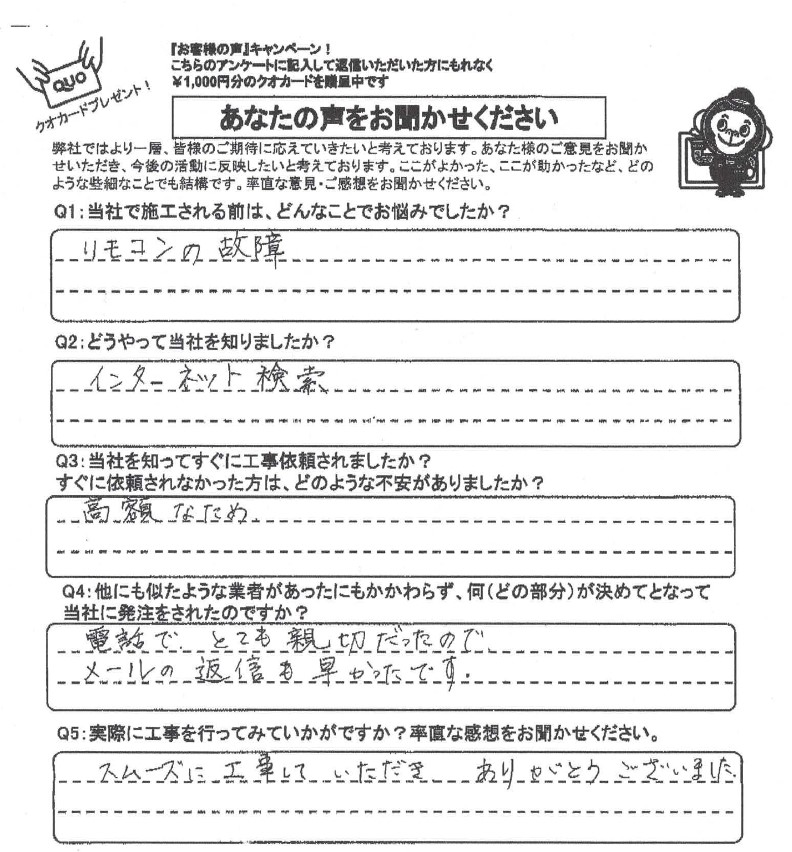 『お客様の声』キャンペーン！
こちらのアンケートに記入して返信いただいた方にもれなく
￥1,000円分のクオカードを贈呈中です
QUO
クオカードプレゼント！
あなたの声をお聞かせください
弊社ではより一層、皆様のご期待に応えていきたいと考えております。あなた様のご意見をお聞か
せいただき、今後の活動に反映したいと考えております。ここがよかった、ここが助かったなど、どの
ような些細なことでも結構です。率直な意見・ご感想をお聞かせください。
Q1：当社で施工される前は、どんなことでお悩みでしたか？
リモコンの故障
Q2：どうやって当社を知りましたか？
インターネット検索
Q3：当社を知ってすぐに工事依頼されましたか？
すぐに依頼されなかった方は、どのような不安がありましたか？
高額なため
Q4：他にも似たような業者があったにもかかわらず、何（どの部分）が決めてとなって
当社に発注をされたのですか？
電話で とても親切だったので
メールの返信も早かったです．
Q5：実際に工事を行ってみていかがですか？率直な感想をお聞かせください。
スムーズに工事していただき ありがとうございました